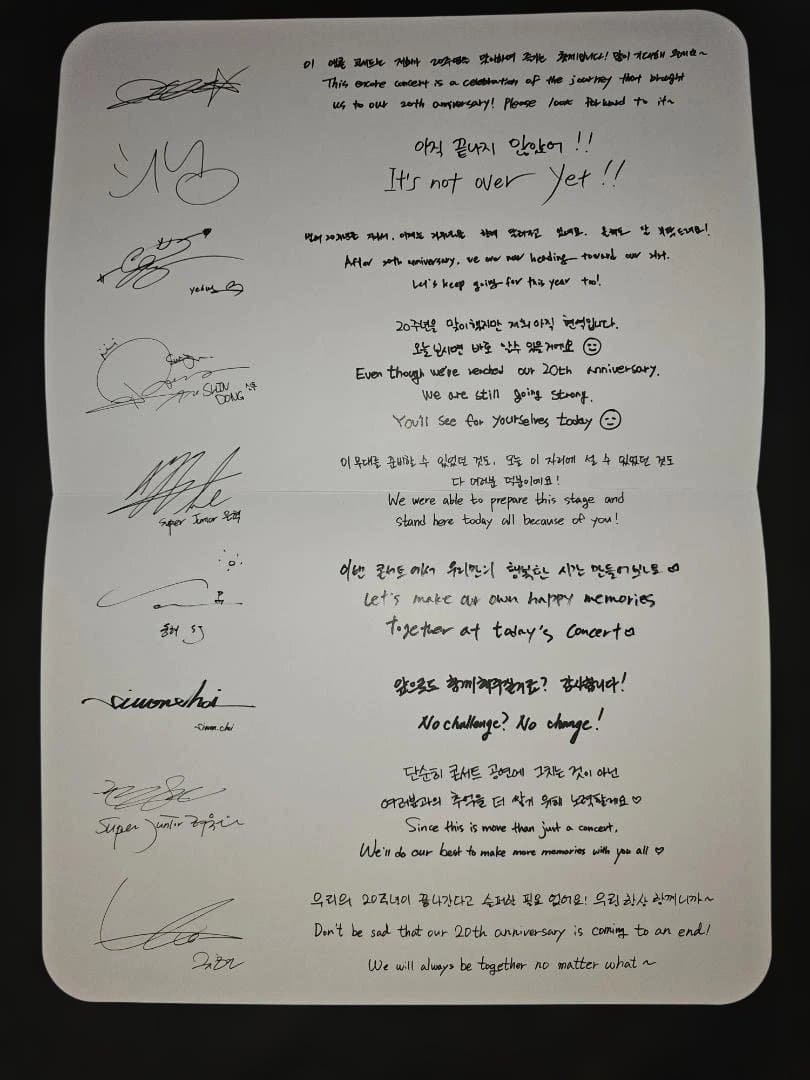 이 앵콜 콘서트는 저희가 20주년을 맞이하여 주는 축제입니다! 많이 기대해 주세요~
This encore concert is a celebration of the journey that brought
us to our 20th anniversary! Please look forward to it~
아직 끝나지 않았어!!
It's not over yet!!
20주년을 지나서, 이제는 함께 있네요. 올해도 잘 부탁드려요!
After 20th anniversary, we are now heading toward our 21st.
Let's keep going for this year too!
yesung
20주년을 맞이했지만 저희 아직 현역입니다.
오늘 보시면 바로 알 수 있을거에요 ☺
Even though we've reached our 20th anniversary.
We are still going strong.
SHIN
DONG 신동
You'll see for yourselves today ☺
이 무대를 준비할 수 있었던 것도, 오늘 이 자리에 설 수 있었던 것도
다 여러분 덕분이에요!
We were able to prepare this stage and
stand here today all because of you!
Super Junior 은혁
이번 콘서트에서 우리만의 행복한 시간 만들어 보아요 ♡
Let's make our own happy memories
together at today's concert♡
동해 SJ
앞으로도 함께해주실거죠? 감사합니다!
siwonchoi
No challenge? No change!
siwon.choi
단순히 콘서트 공연에 그치는 것이 아닌
여러분과의 추억을 더 쌓기 위해 노력할게요 ♡
Since this is more than just a concert,
Super Junior 려욱
We'll do our best to make more memories with you all ♡
우리의 20주년이 끝나간다고 슬퍼할 필요 없어요! 우린 항상 함께니까~
Don't be sad that our 20th anniversary is coming to an end!
규현
We will always be together no matter what~